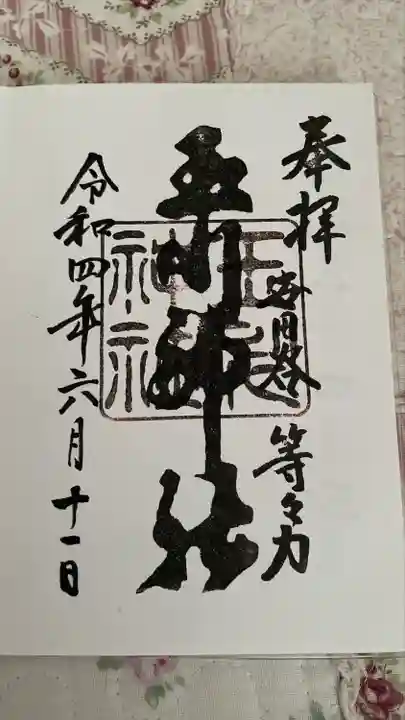 奉拝
等々力
玉川神社
令和四年六月十一日